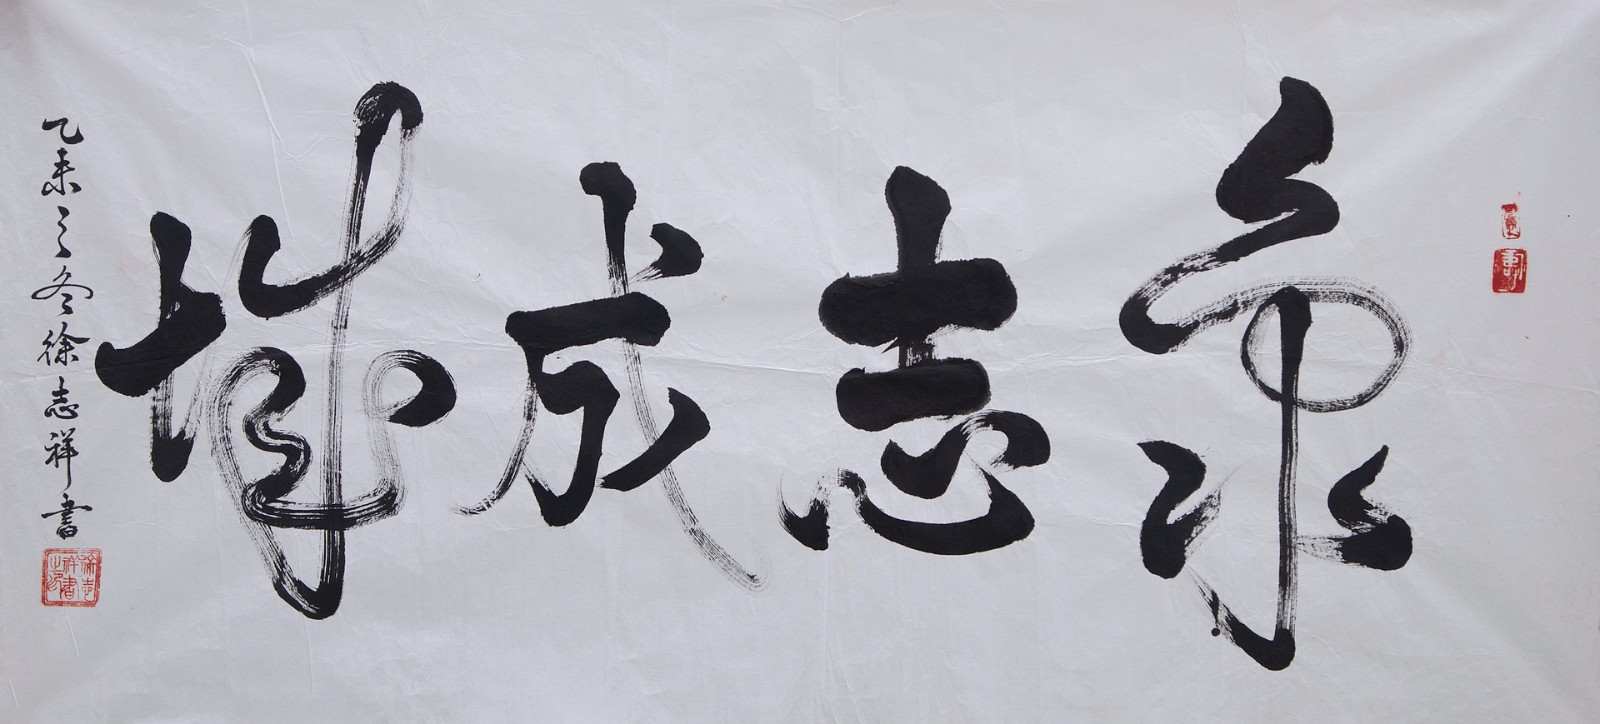 众志成城
乙未之冬徐志祥书